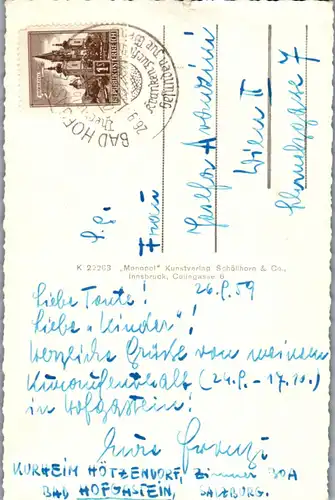 Liebe Tante!
26.9.59
Liebe „Kinder"!
Herzliche Grüße von meinem
Kuraufenthalt (24.9. - 17.10.)
in Hofgastein!
Eure
KURHEIM HÖTZENDORF, Zimmer 30A
BAD HOFGASTEIN, SALZBURG.
K 22263 „Monopol" Kunstverlag Schöllhorn & Co.,
Innsbruck, Colingasse 6
Frau
Wien II
7
REPUBLIK ÖSTERREICH
BAD HOFG
26.9